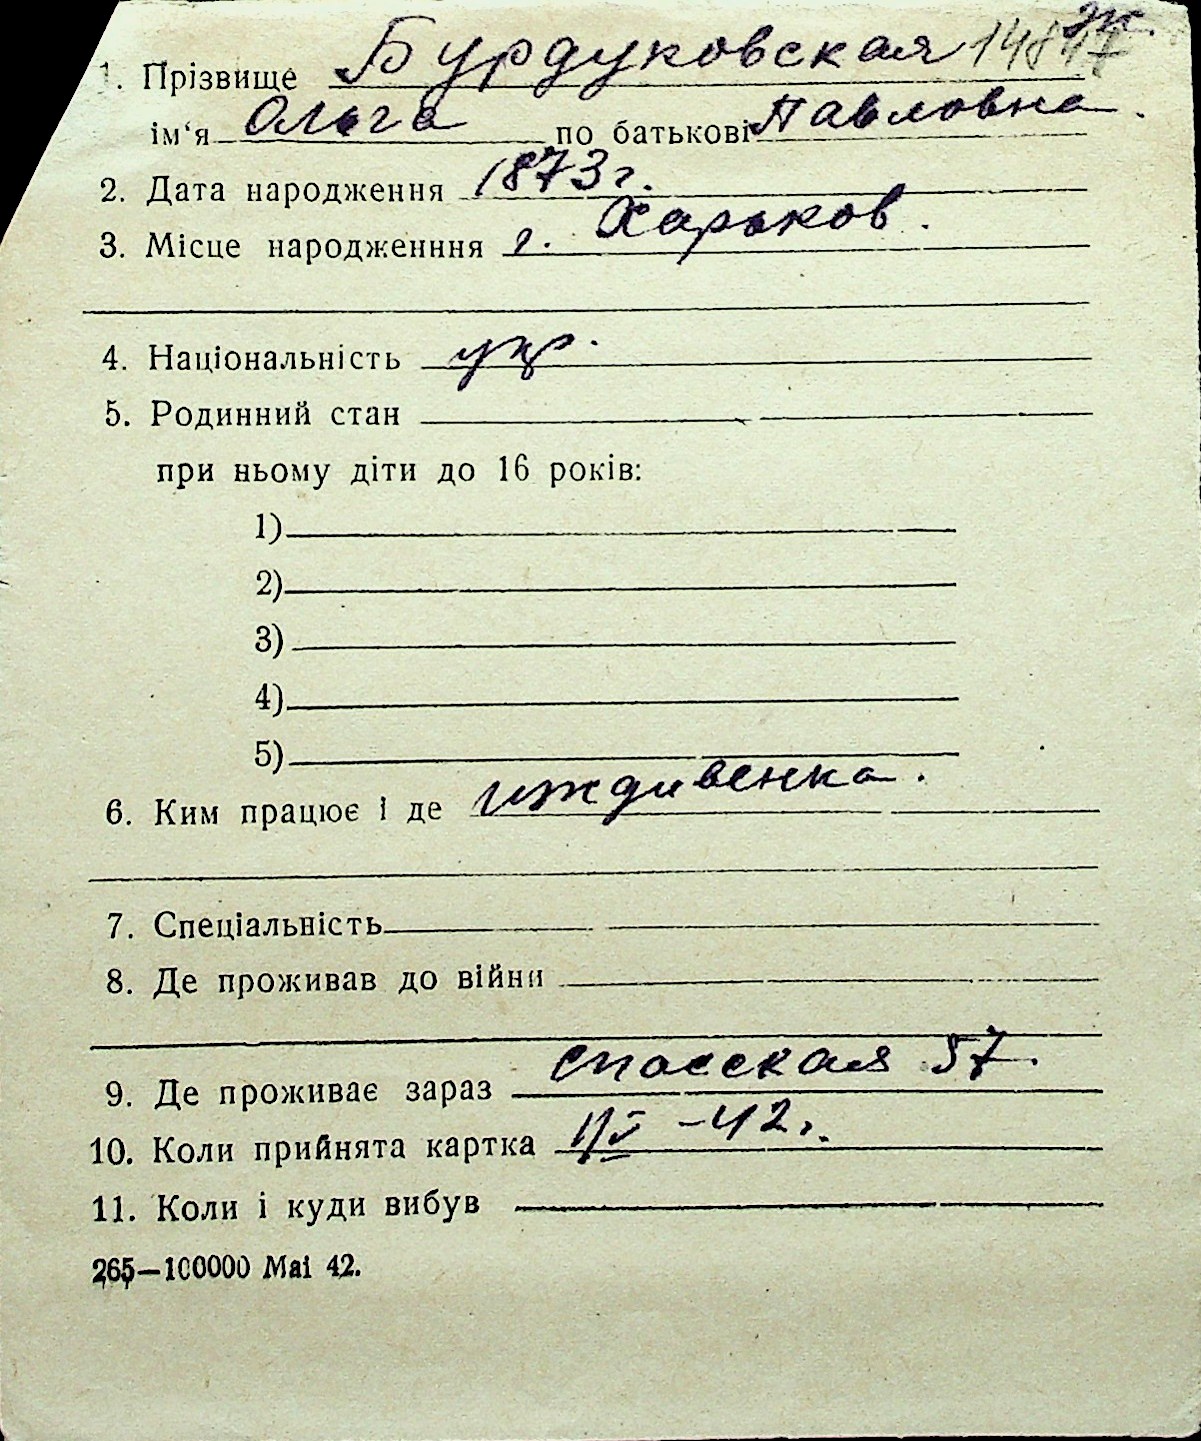 1. Прізвище Бурдуковская
ім‘я Ольга по батькові Павловна.
2. Дата народження 1873 г.
3. Місце народженння г. Харьков.
4. Національність укр.
5. Родинний стан
при ньому діти до 16 років:
1)
2)
3)
4)
5)
6. Ким працює і де иждивенка.
7. Спеціальність
8. Де проживав до війни
9. Де проживає зараз Спасская 57.
10. Коли прийнята картка -42 г.
11. Коли і куди вибув
265—100000 Mai 42.